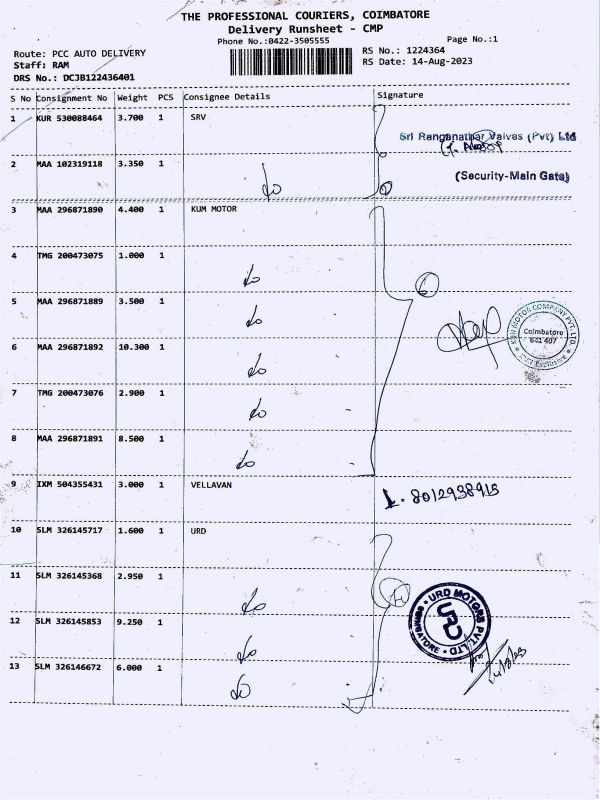 THE PROFESSIONAL COURIERS, COIMBATORE
Delivery Runsheet - CMP
Phone No.:0422-3505555
Page No.:1
Route: PCC AUTO DELIVERY
RS No.: 1224364
Staff: RAM
RS Date: 14-Aug-2023
DRS No.: DCJB122436401
S No Consignment No Weight PCS Consignee Details Signature
1 KUR 530088464 3.700 1 SRV
Sri Ranganathar Valves (Pvt) Ltd
2 MAA 102319118 3.350 1 do
(Security-Main Gate)
3 MAA 296871890 4.400 1 KUM MOTOR
4 TMG 200473075 1.000 1 do
5 MAA 296871889 3.500 1 do
6 MAA 296871892 10.300 1 do
Coimbatore
641 407
7 TMG 200473076 2.900 1 do
8 MAA 296871891 8.500 1 do
9 IXM 504355431 3.000 1 VELLAVAN
8012938915
10 SLM 326145717 1.600 1 URD
11 SLM 326145368 2.950 1 do
URD MOTORS PVT. LTD
URD
12 SLM 326145853 9.250 1 do
13 SLM 326146672 6.000 1 do